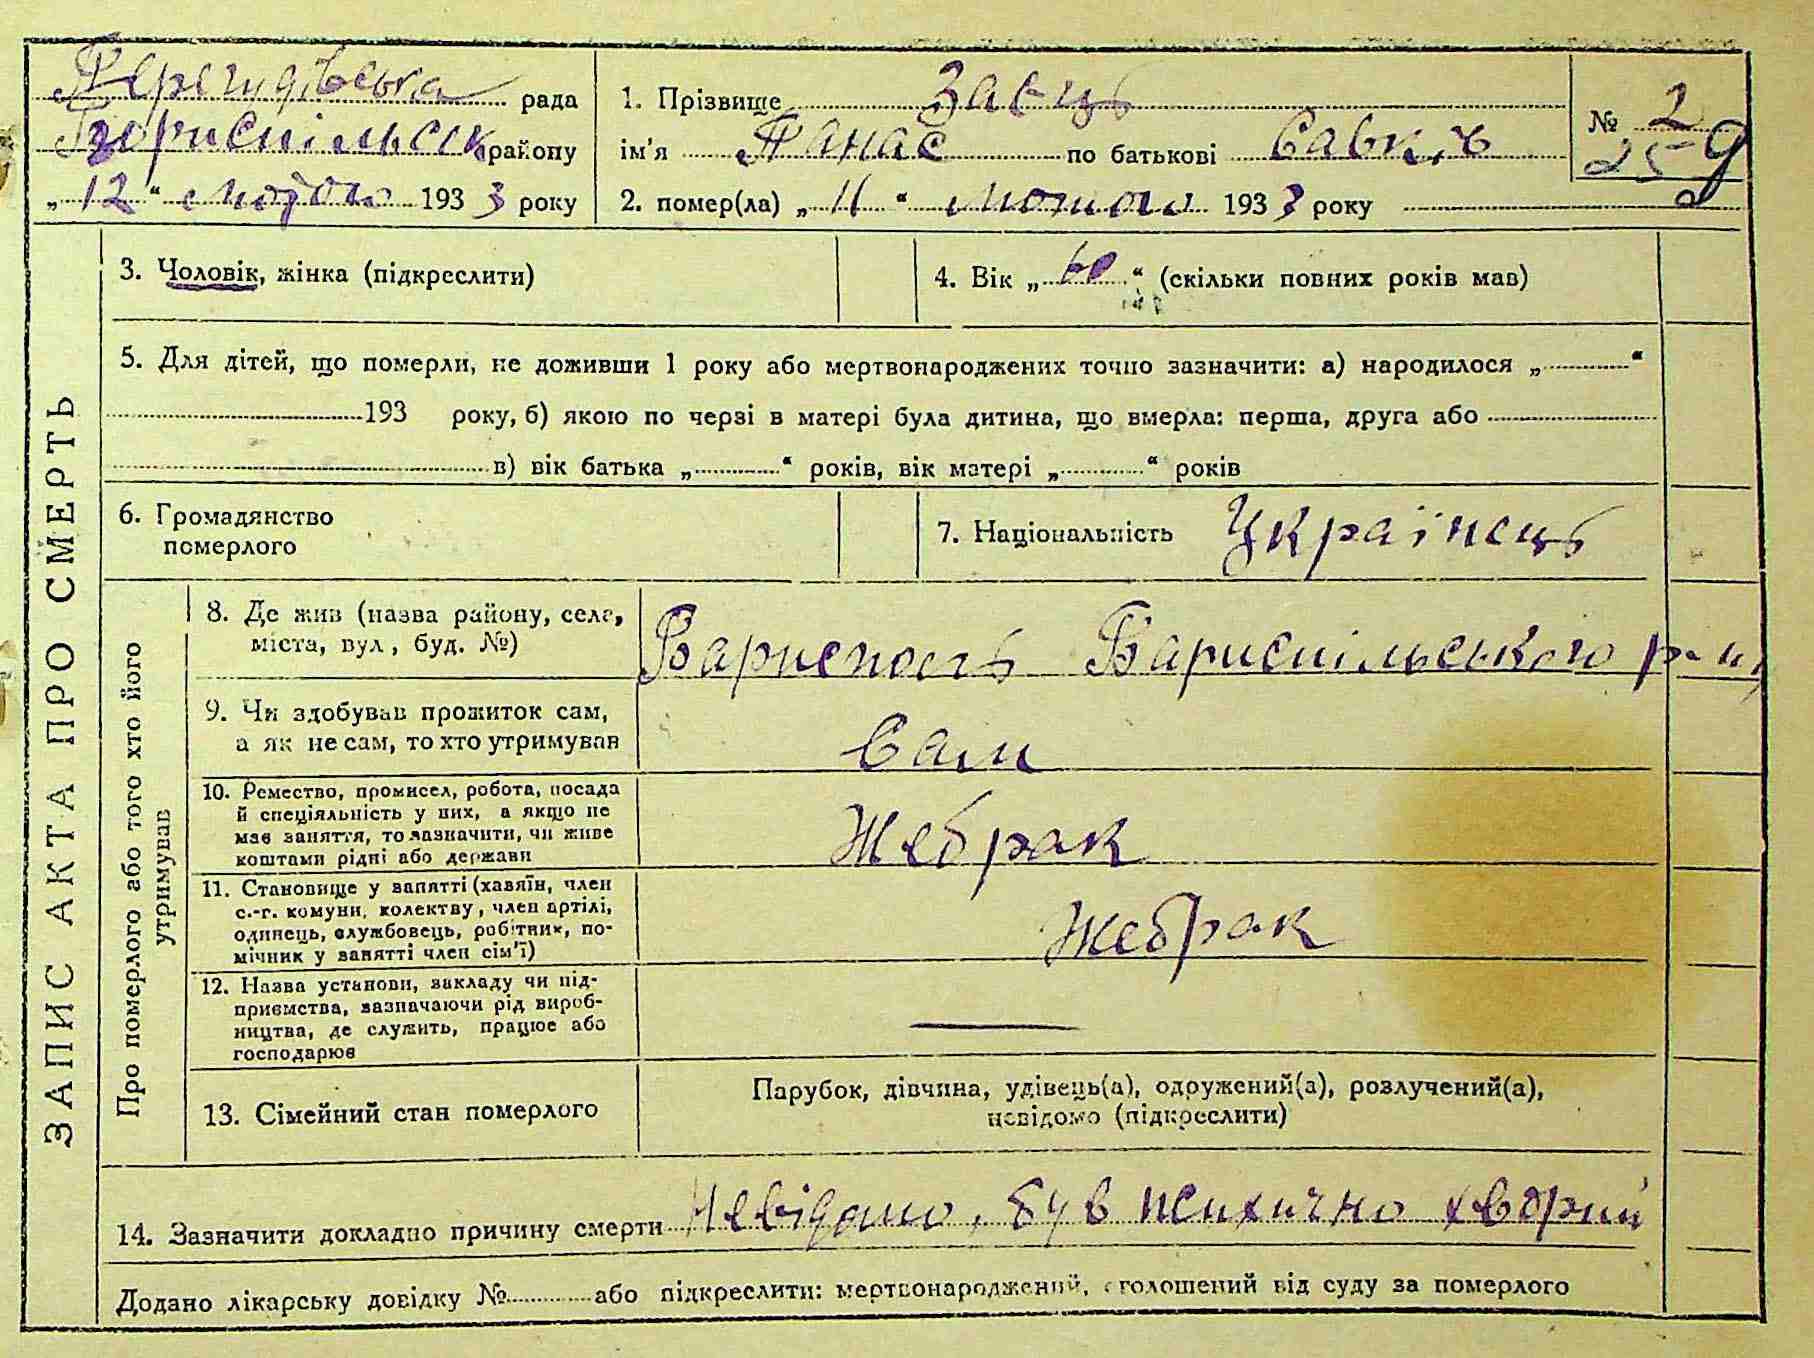 Перегудівська рада
Бориспільськ району
„ 12 “ лютого 1933 року
1. Прізвище Заєць
ім'я Панас по батькові Савків
2. помер(ла) „ 11 “ лютого 1933 року
№ 2
25
ЗАПИС АКТА ПРО СМЕРТЬ
3. Чоловік, жінка (підкреслити)
4. Вік „ 60 “ (скільки повних років мав)
5. Для дітей, що померли, не доживши 1 року або мертвонароджених точно зазначити: а) народилося „ “
193 року, б) якою по черзі в матері була дитина, що вмерла: перша, друга або
в) вік батька „ “ років, вік матері „ “ років
6. Громадянство
померлого
7. Національність Українець
Про померлого або того хто його
утримував
8. Де жив (назва району, села,
міста, вул, буд. №)
Бариспость Бариспільського р-ну
9. Чи здобував прожиток сам,
а як не сам, то хто утримував
Сам
10. Ремество, промисел, робота, посада
й спеціяльність у них, а якщо не
має заняття, то зазначити, чи живе
коштами рідні або держави
Жебрак
11. Становище у занятті (хазяїн, член
с.-г. комуни, колектву, член артілі,
одинець, службовець, робітник, по-
мічник у занятті член сім'ї)
Жебрак
12. Назва установи, закладу чи під-
приємства, зазначаючи рід вироб-
ництва, де служить, працює або
господарює
13. Сімейний стан померлого
Парубок, дівчина, удівець(а), одружений(а), розлучений(а),
невідомо (підкреслити)
14. Зазначити докладно причину смерти Невідомо, був психично хворий
Додано лікарську довідку № або підкреслити: мертвонароджений, оголошений від суду за померлого